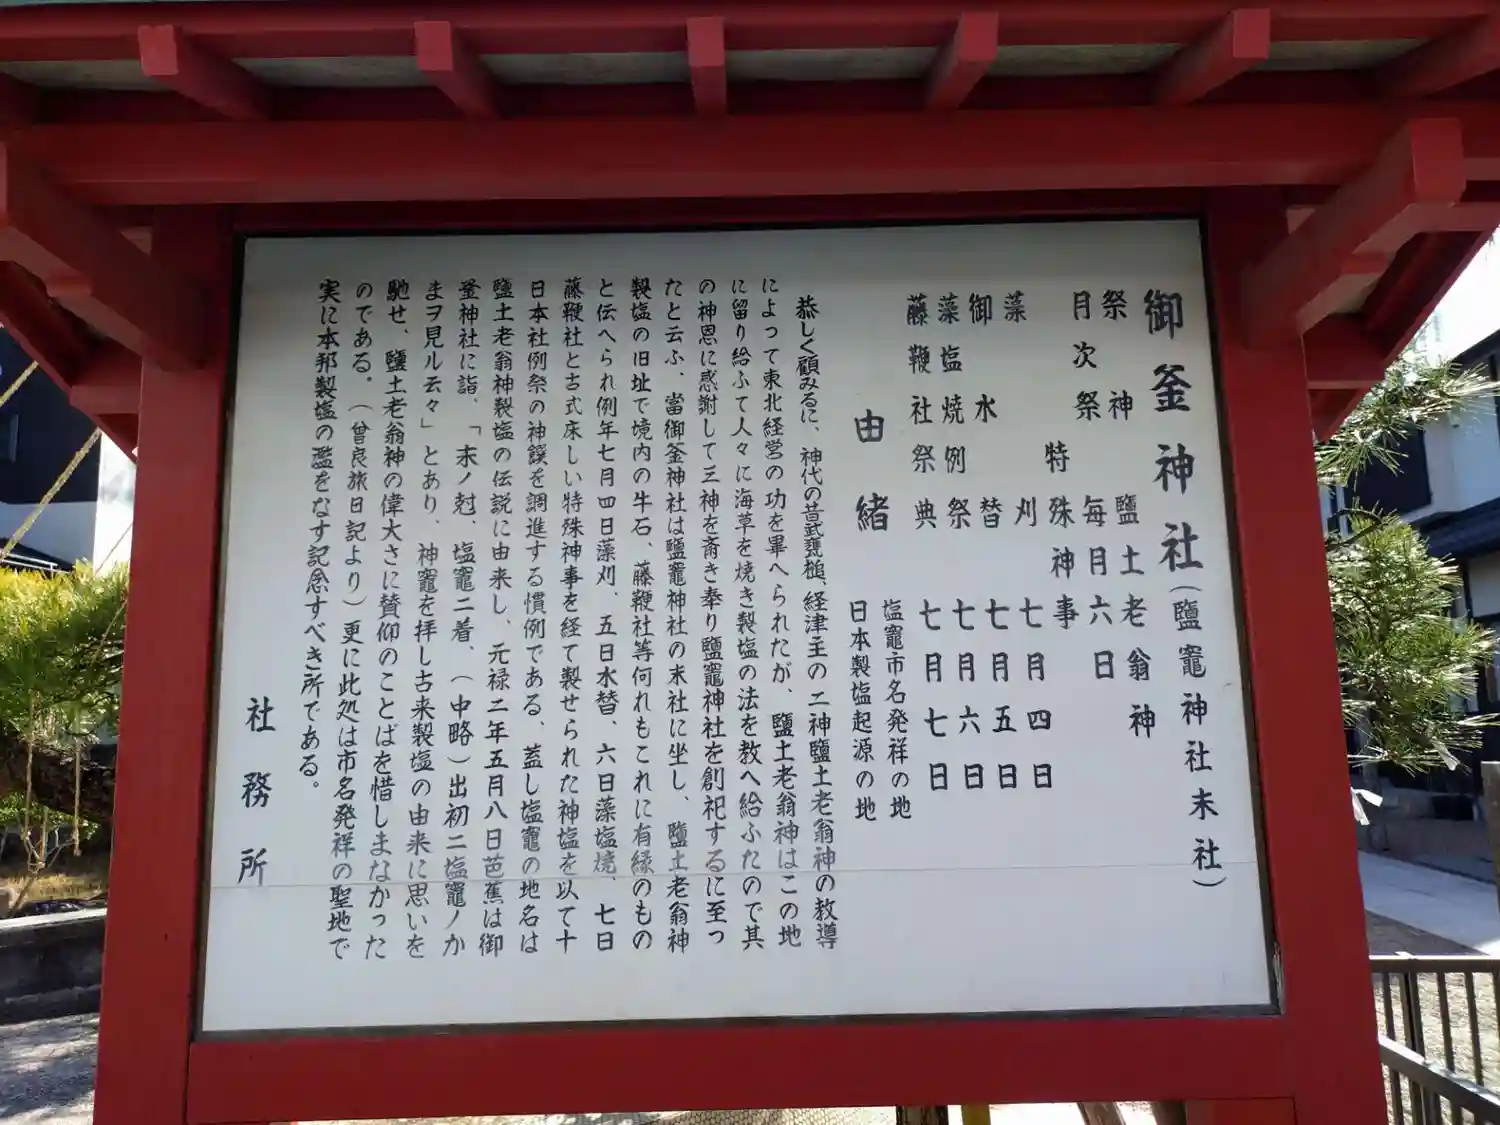 御釜神社（鹽竈神社末社）
祭神　鹽土老翁神
月次祭　毎月六日
特殊神事
藻刈　七月四日
御水替　七月五日
藻塩焼例祭　七月六日
藤鞭社祭典　七月七日
塩竈市名発祥の地
日本製塩起源の地
由緒
恭しく顧みるに、神代の昔武甕槌、経津主の二神鹽土老翁神の教導
によって東北経営の功を畢へられたが、鹽土老翁神はこの地
に留り給ふて人々に海草を焼き製塩の法を教へ給ふたので其
の神恩に感謝して三神を斎き奉り鹽竈神社を創祀するに至っ
たと云ふ、當御釜神社は鹽竈神社の末社に坐し、鹽土老翁神
製塩の旧址で境内の牛石、藤鞭社等何れもこれに有縁のもの
と伝へられ例年七月四日藻刈、五日水替、六日藻塩焼、七日
藤鞭社と古式床しい特殊神事を経て製せられた神塩を以て十
日本社例祭の神饌を調進する慣例である、蓋し塩竈の地名は
鹽土老翁神製塩の伝説に由来し、元禄二年五月八日芭蕉は御
釜神社に詣、「末ノ尅、塩竈ニ着、（中略）出初ニ塩竈ノか
まヲ見ル云々」とあり、神竈を拝し古来製塩の由来に思いを
馳せ、鹽土老翁神の偉大さに賛仰のことばを惜しまなかった
のである。（曾良旅日記より）更に此処は市名発祥の聖地で
実に本邦製塩の濫をなす記念すべき所である。
社務所